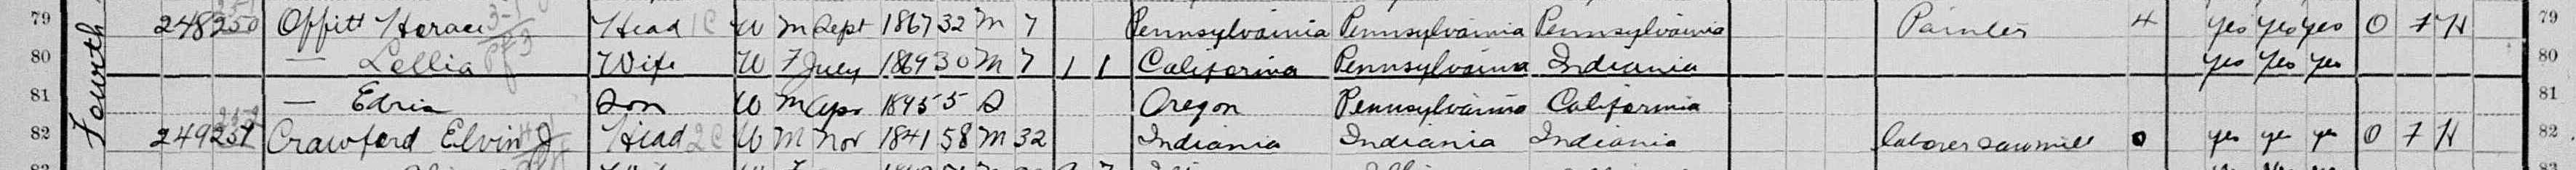 Fourth
79 248 250 Offitt Horace Head W M Sept 1867 32 M 7 Pennsylvainia Pennsylvainia Pennsylvainia Painter 4 yes yes yes O F H 79
80 — Lellia Wife W F July 1869 30 M 7 1 1 California Pennsylvainia Indiania yes yes yes 80
81 — Edria Son W M Apr 1895 5 S Oregon Pennsylvainia California 81
82 249 251 Crawford Elvin J Head W M Nov 1841 58 M 32 Indiania Indiania Indiania laborer sawmill 0 yes ye ye O F H 82